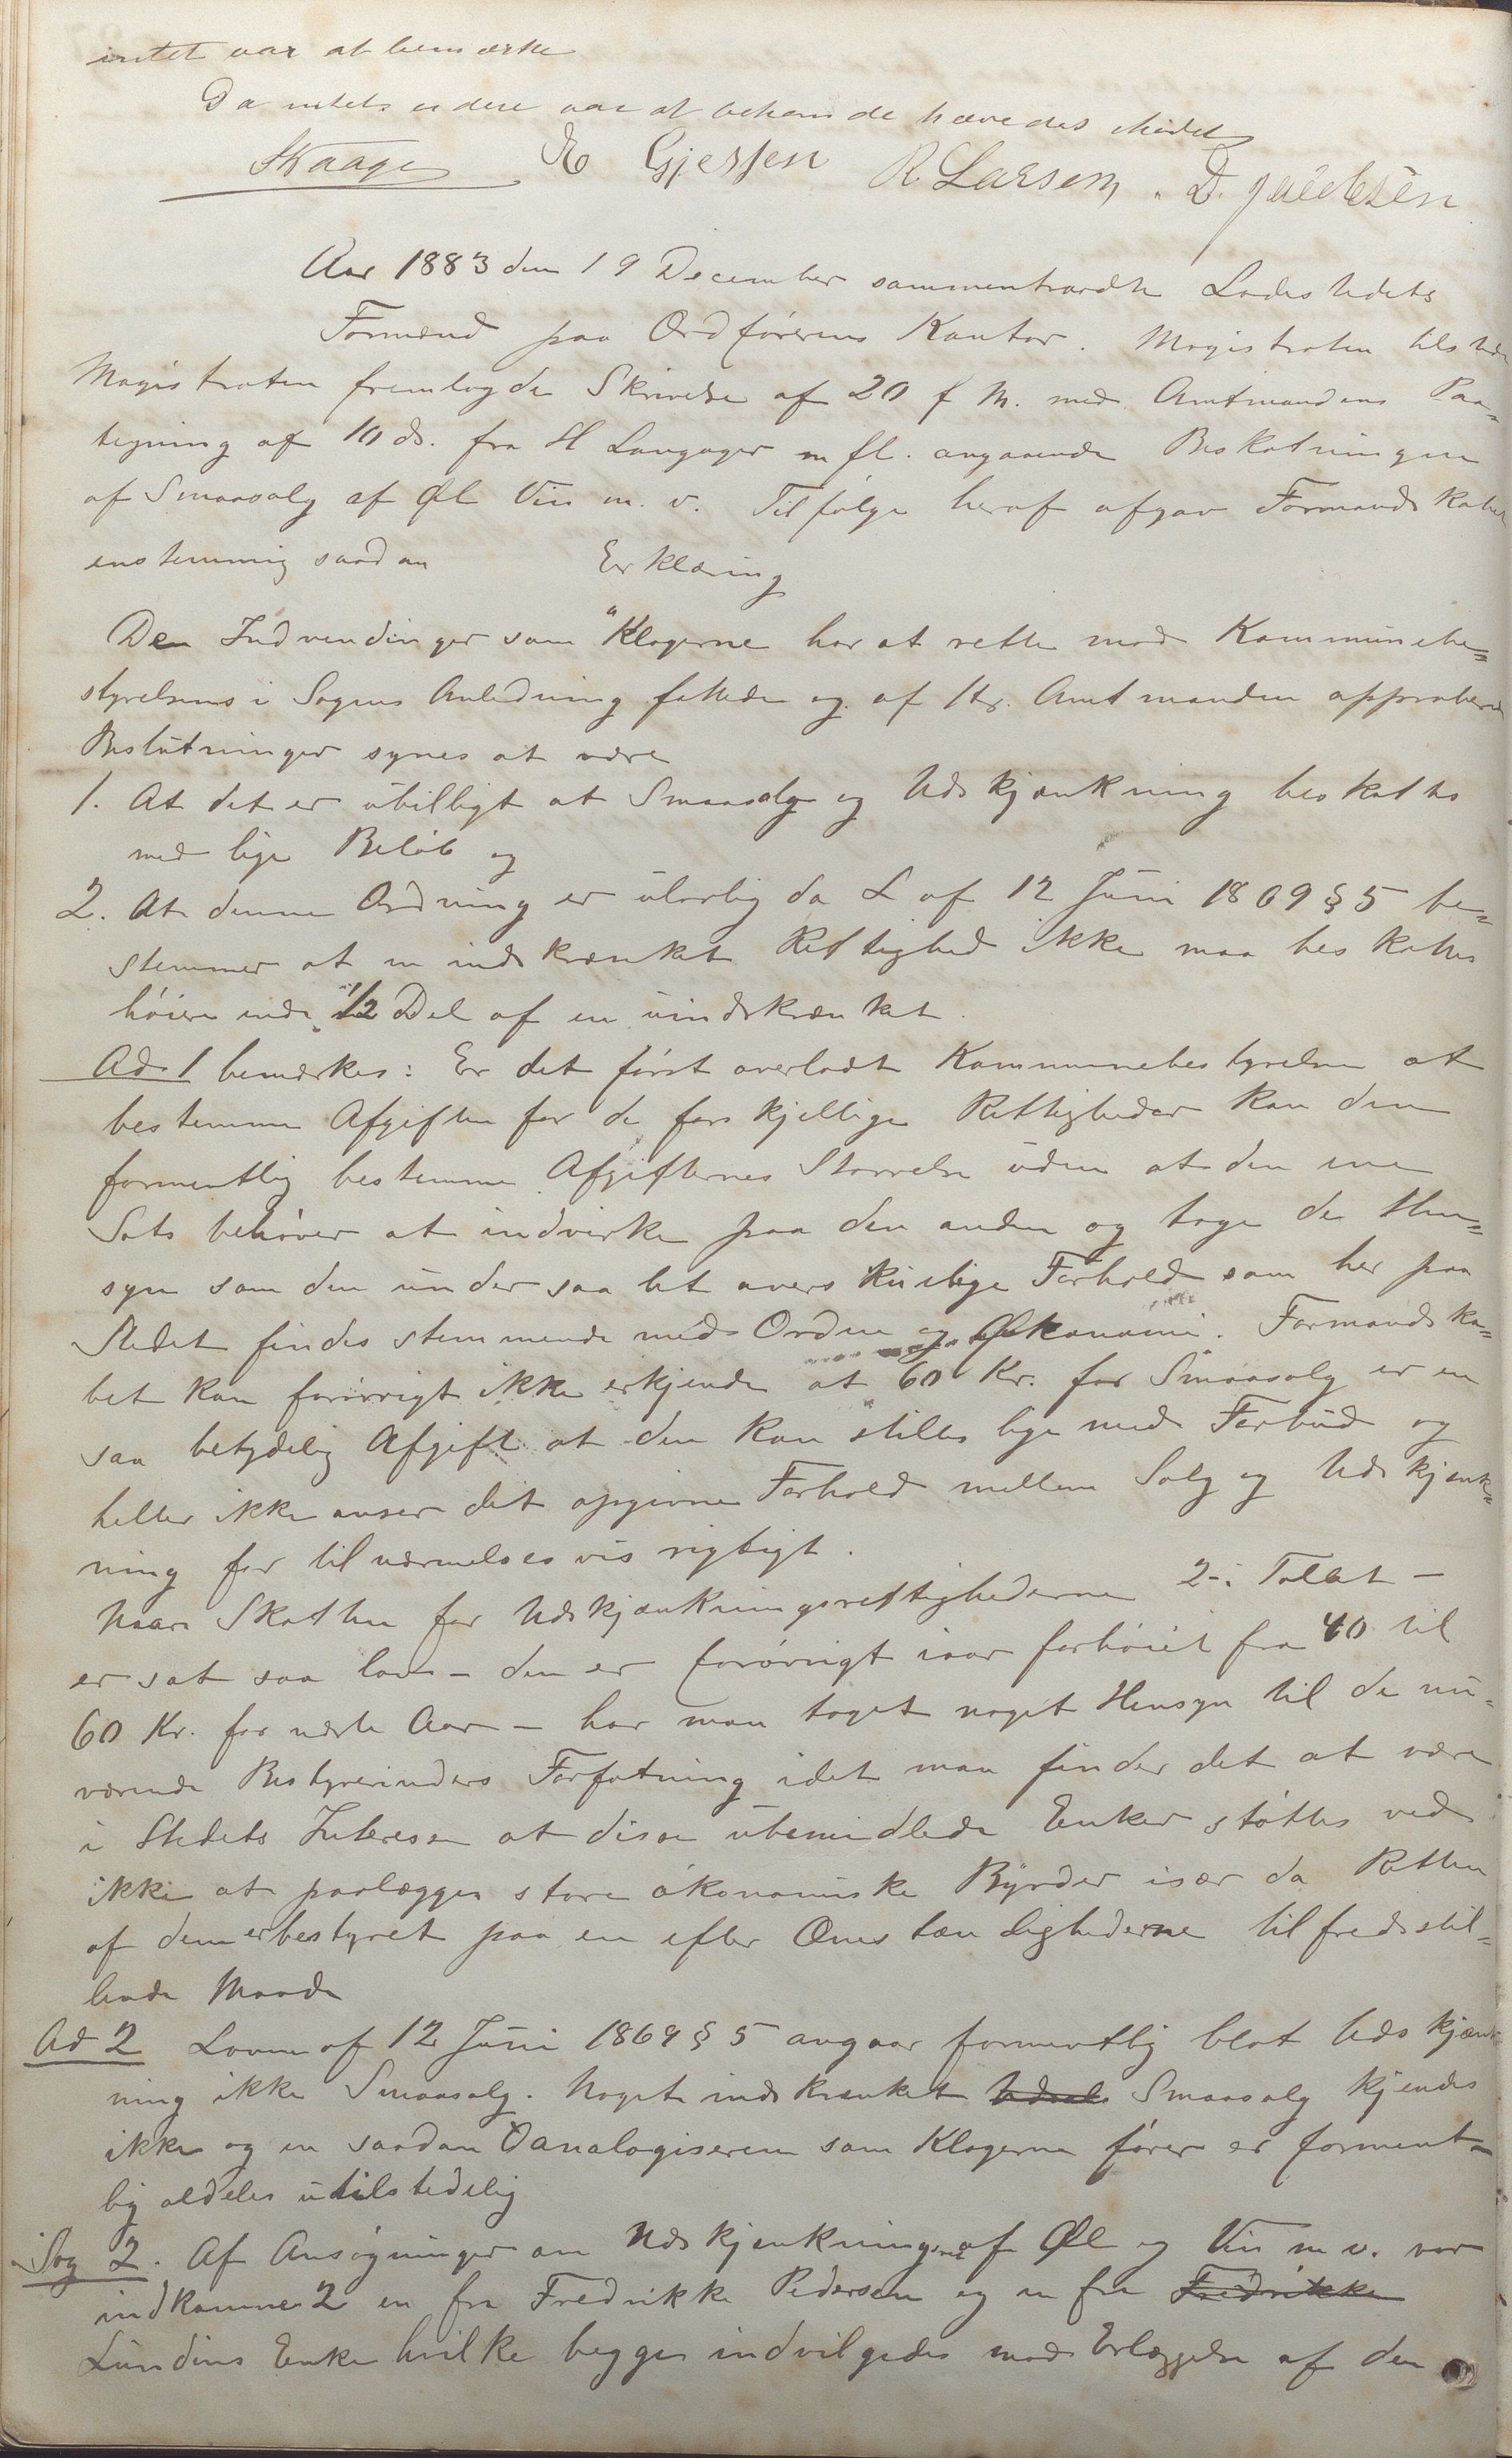 intet var at bemærke
Da intet videre var at behandle hævedes Mødet
Skaage E Gjessen R. Larsen, D. Jacobsen
Aar 1883 den 19 December sammentraadte Ladestedets
Formænd paa Ordførerens Kontor. Magistraten tilstede
Magistraten fremlagde Skrivelse af 20 f M. med Amtmandens Paa=
tegning af 10 ds. fra H Langager m fl. angaaende Beskatningen
af Smaasalg af Øl Vin m. v. Tilfølge heraf afgav Formandskabet
enstemmig saadan Erklæring
De Indvendinger som Klagerne har at rette mod Kommunebe=
styrelsens i Sagens Anledning fattede og af Hr. Amtmanden approberede
Beslutninger synes at være
1. At det er ubilligt at Smaasalg og Udskjænkning beskattes
med lige Beløb og
2. At denne Ordning er ulovlig da L af 12 Juni 1869 § 5 be=
stemmer at en indskrænket Rettighed ikke maa beskattes
høiere end 1/2 Del af en uindskrænket.
Ad 1 bemærkes: Er det først overladt Kommunebestyrelsen at
bestemme Afgiften for de forskjellige Rettigheder kan den
formentlig bestemme Afgifternes Størrelse uden at den ene
Sats behøver at indvirke paa den anden og tage de Hen=
syn som den under saa let overskuelige Forhold som her paa
Stedet findes stemmende med Orden og Økonomi. Formandska=
bet kan forøvrigt ikke erkjende at 60 Kr. for Smaasalg er en
saa betydelig Afgift at den kan stilles lige med Forbud og
heller ikke anser det opgivne Forhold mellem Salg og Udskjænk=
ning for tilnærmelsesvis rigtigt.
Naar Skatten for Udskjænkningsrettighederne 2 i Tallet —
er sat saa lav — den er forøvrigt iaar forhøiet fra 40 til
60 Kr. for næste Aar — har man taget noget Hensyn til de nu=
værende Bestyrerinders Forfatning idet man finder det at være
i Stedets Interesse at disse ubemidlede Enker støttes ved
ikke at paalægges store økonomiske Byrder især da Retten
af dem er bestyret paa en efter Omstændighederne tilfredsstil=
lende Maade
Ad 2 Loven af 12 Juni 1869 § 5 angaar formentlig blot Udskjænk=
ning ikke Smaasalg. Noget indskrænket Smaasalg kjendes
ikke og en saadan Analogiseren som Klagerne fører er forment=
lig aldeles utilstedelig
Sag 2. Af Ansøgninger om Udskjenkning af Øl og Vin m v. var
indkommen 2 en fra Fredrikke Pedersen og en fra Fredrikke
Lundins Enke hvilke begge indvilgedes mod Erlæggelse af den